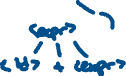 <expr>
<id> + <expr>